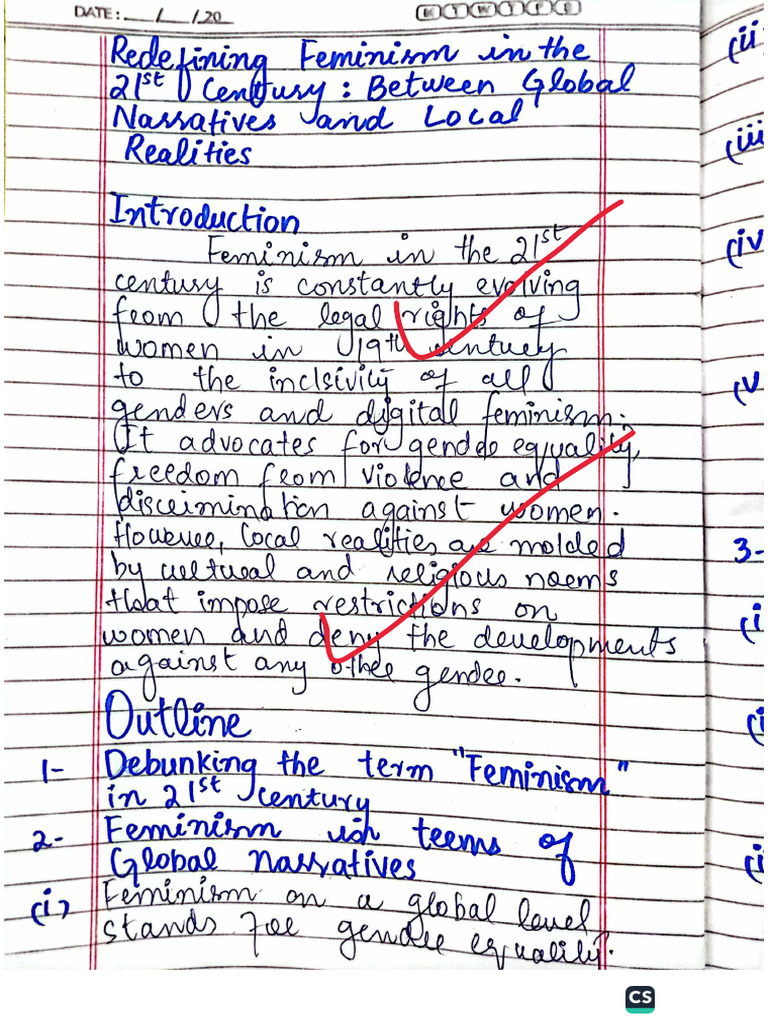 DATE: __/__/20__
Redefining Feminism in the
21st Century: Between Global
Narratives and Local
Realities
Introduction
Feminism in the 21st
century is constantly evolving
from the legal rights of
women in 19th century
to the inclsivity of all
genders and digital feminism.
It advocates for gender equality,
freedom from violence and
discrimination against women.
However, local realities are molded
by cultural and religious norms
that impose restrictions on
women and deny the developments
against any other gender.
Outline
1- Debunking the term "Feminism"
in 21st century
2- Feminism in terms of
Global Narratives
(i) Feminism on a global level
stands for gender equality.
(ii
(iii
(iv
(v
3-
(i
(i
(i
CS